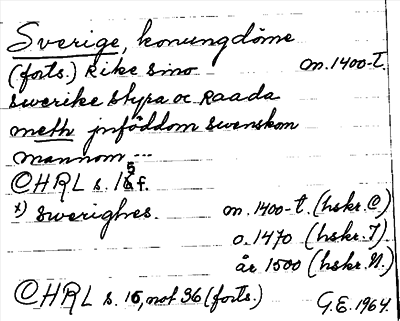 Sverige, konungdöme
(forts.) Rike sino m. 1400-t.
swerike styra oc Raada
meth jnföddom swenskom
mannom ...
CHRL s. 15 f.
x) swerighes. m. 1400-t. (hskr. C)
o. 1470 (hskr. I)
år 1500 (hskr. N.)
CHRL s. 15, not 96 (forts.)
G.E. 1964.